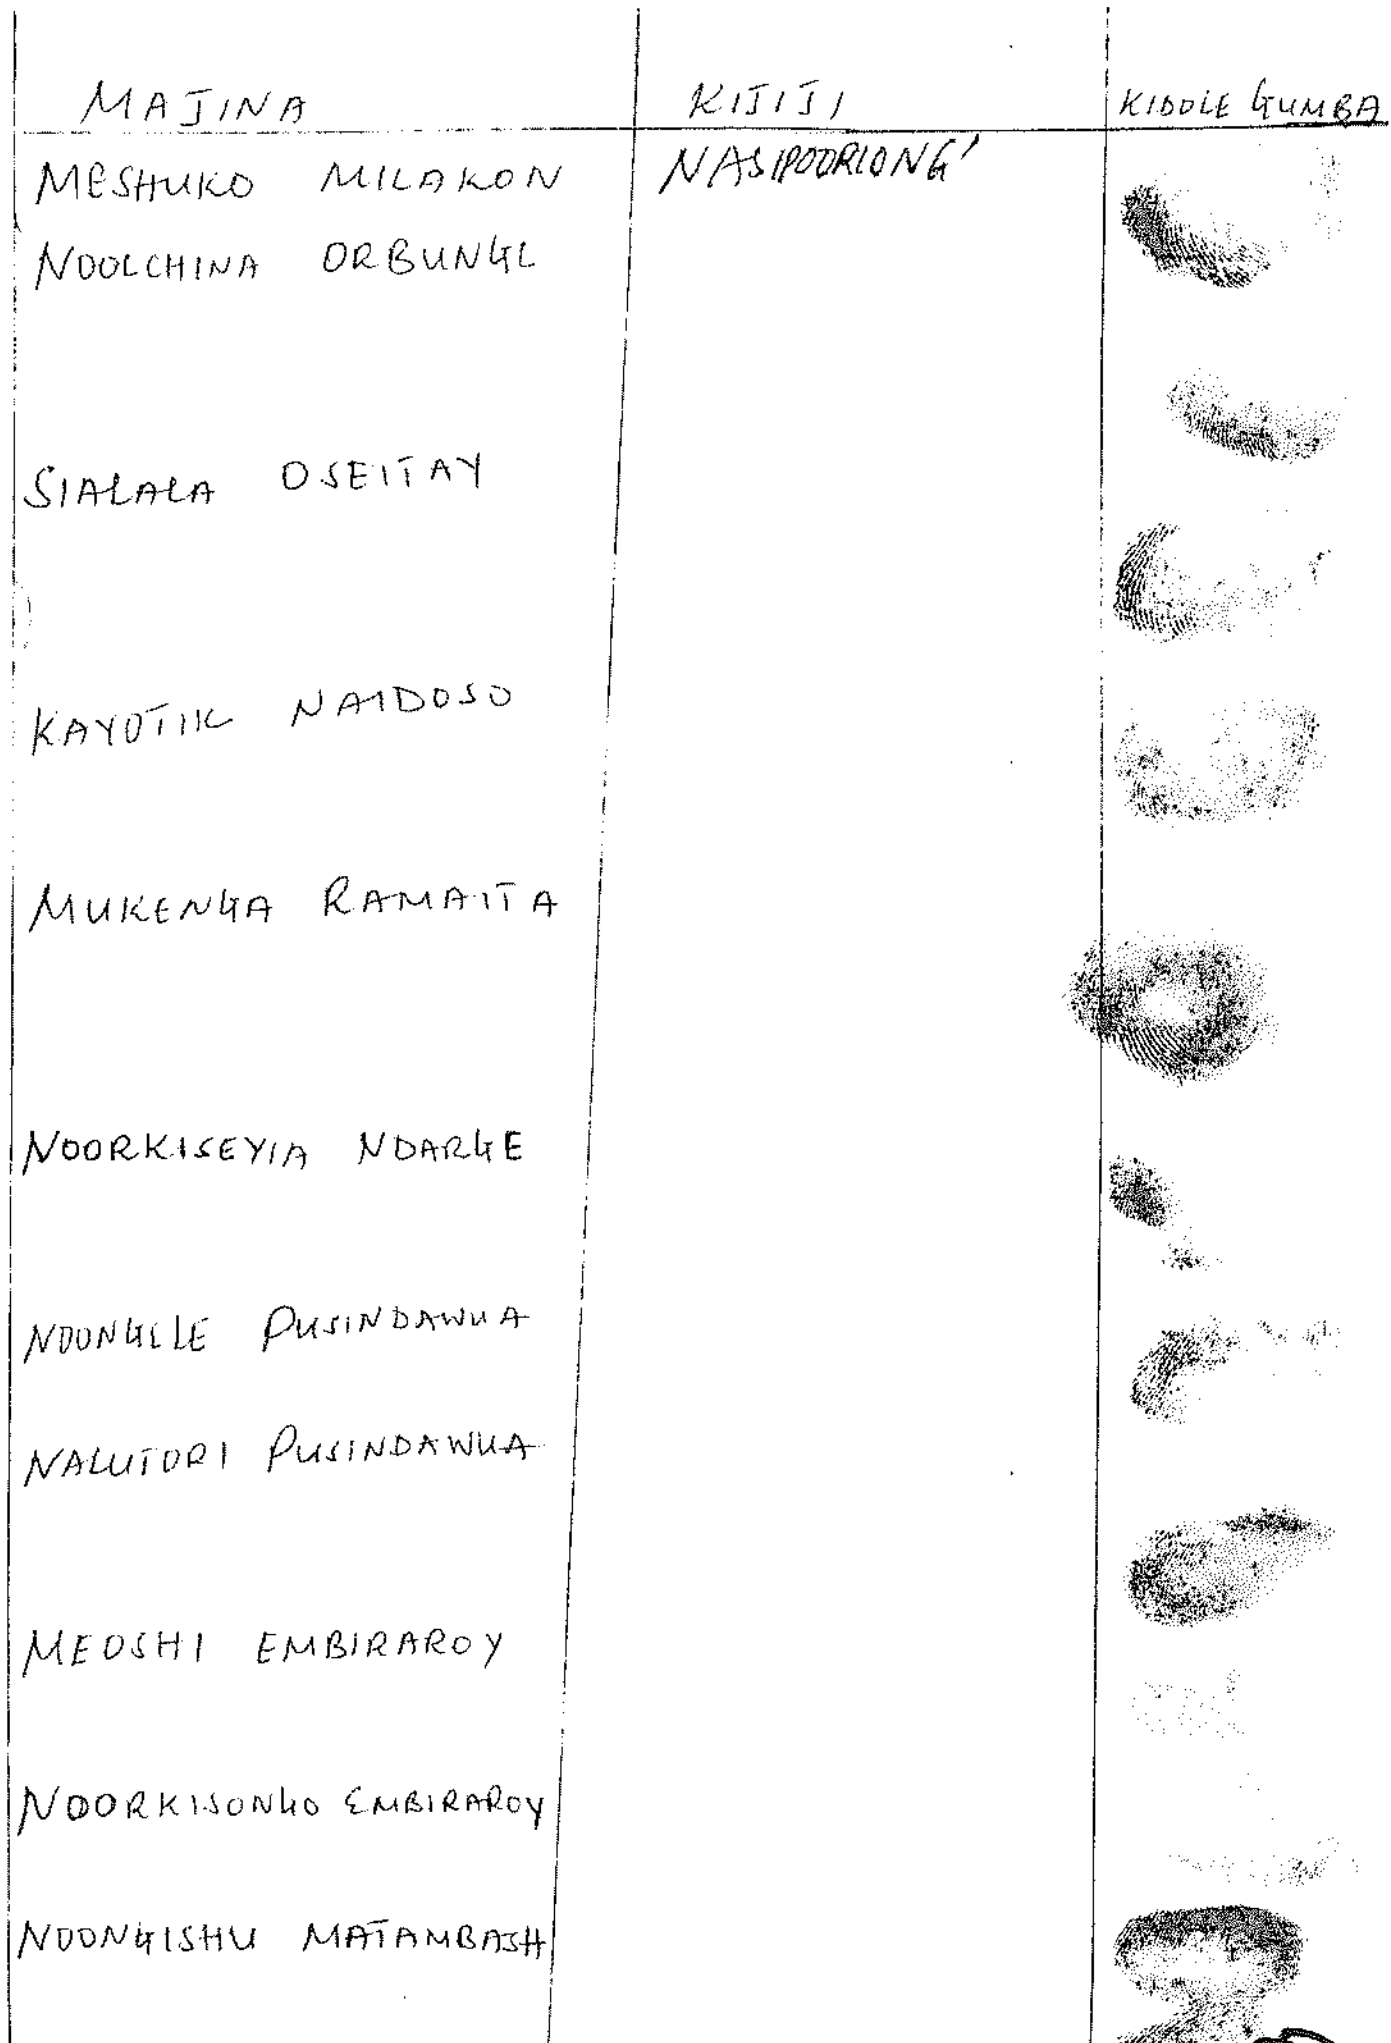 MAJINA KIJIJI KIDOLE GUMBA
MESHUKO MILAKON NASIPOORIONG'
NOOLCHINA ORBUNGE
SIALALA OSEITAY
KAYOTIK NAIDOSO
MUKENGA RAMAITA
NOORKISEYIA NDARGE
NOONGELE PUSINDAWUA
NALUTORI PUSINDAWUA
MEOSHI EMBIRAROY
NOORKISONGO EMBIRAROY
NOONGISHU MATAMBASH